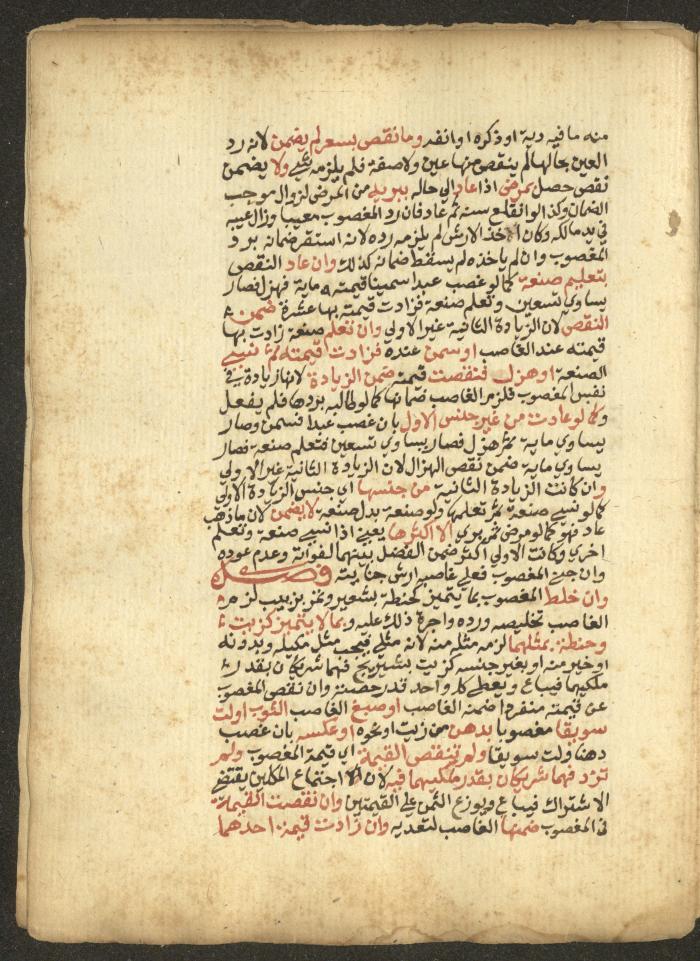 منه ما فيه دية او ذكره او انفه وما نقص بسعر لم يضمن لانه رد
العين بحالها لم ينقص منها عين ولا صفة فلم يلزمه شيء ولا يضمن
نقص حصل بمرض اذا عاد الى حاله ببريه من المرض لزوال موجب
الضمان وكذا لو انقلع سنه ثم عاد فان رد المغصوب معيبا وزال عيبه
في يد مالكه وكان اخذ الارش لم يلزمه رده لانه استقر ضمانه برد
المغصوب وان لم ياخذه لم يسقط ضمانه كذلك وان عاد النقص
بتعليم صنعة كما لو غصب عبدا سمينا قيمته ماية فهزل فصار
يساوي تسعين وتعلم صنعة فزادت قيمته بها عشرة ضمن
النقص لان الزيادة الثانية غير الاولى وان تعلم صنعة زادت بها
قيمته عند الغاصب او سمن عنده فزادت قيمته ثم نسي
الصنعة او هزل فنقصت قيمته ضمن الزيادة لانها زيادة في
نفس المغصوب فلزم الغاصب ضمانها كما لو طالبه بردها فلم يفعل
وكما لو عادت من غير جنس الاول بان غصب عبدا فسمن وصار
يساوي ماية ثم هزل فصار يساوي تسعين فتعلم صنعة فصار
يساوي ماية ضمن نقص الهزال لان الزيادة الثانية غير الاولى
وان كانت الزيادة الثانية من جنسها اي جنس الزيادة الاولى
كما لو نسي صنعة ثم تعلمها ولو صنعة بدل صنعة لا يضمن لان ما ذهب
عاد فهو كما لو مرض ثم بري الا اكثرها يعني اذا نسي صنعة وتعلم
اخرى وكانت الاولى اكثر ضمن الفضل بينهما لفواته وعدم عوده
وان جنى المغصوب فعلى غاصبه ارش جنايته فصل
وان خلط المغصوب بما يتميز كحنطة بشعير وتمر بزبيب لزم
الغاصب تخليصه ورده واجرة ذلك عليه وبما لا يتميز كزيت
وحنطة بمثلهما لزمه مثله منه لانه مثلي فيجب مثل مكيله وبدونه
او خير منه او بغير جنسه كزيت بشيرج فهما شريكان بقدر
ملكيهما فيباع ويعطى كل واحد قدر حصته وان نقص المغصوب
عن قيمته منفردا ضمنه الغاصب او صبغ الغاصب الثوب او لت
سويقا مغصوبا بدهن من زيت او نحوه او عكسه بان غصب
دهنا ولت سويقا ولم تنقص القيمة اي قيمة المغصوب ولم
تزد فهما شريكان بقدر ملكيهما فيه لان اجتماع الملكين يقتضي
الاشتراك فيباع ويوزع الثمن على القيمتين وان نقصت القيمة
في المغصوب ضمنها الغاصب لتعديه وان زادت قيمة احدهما